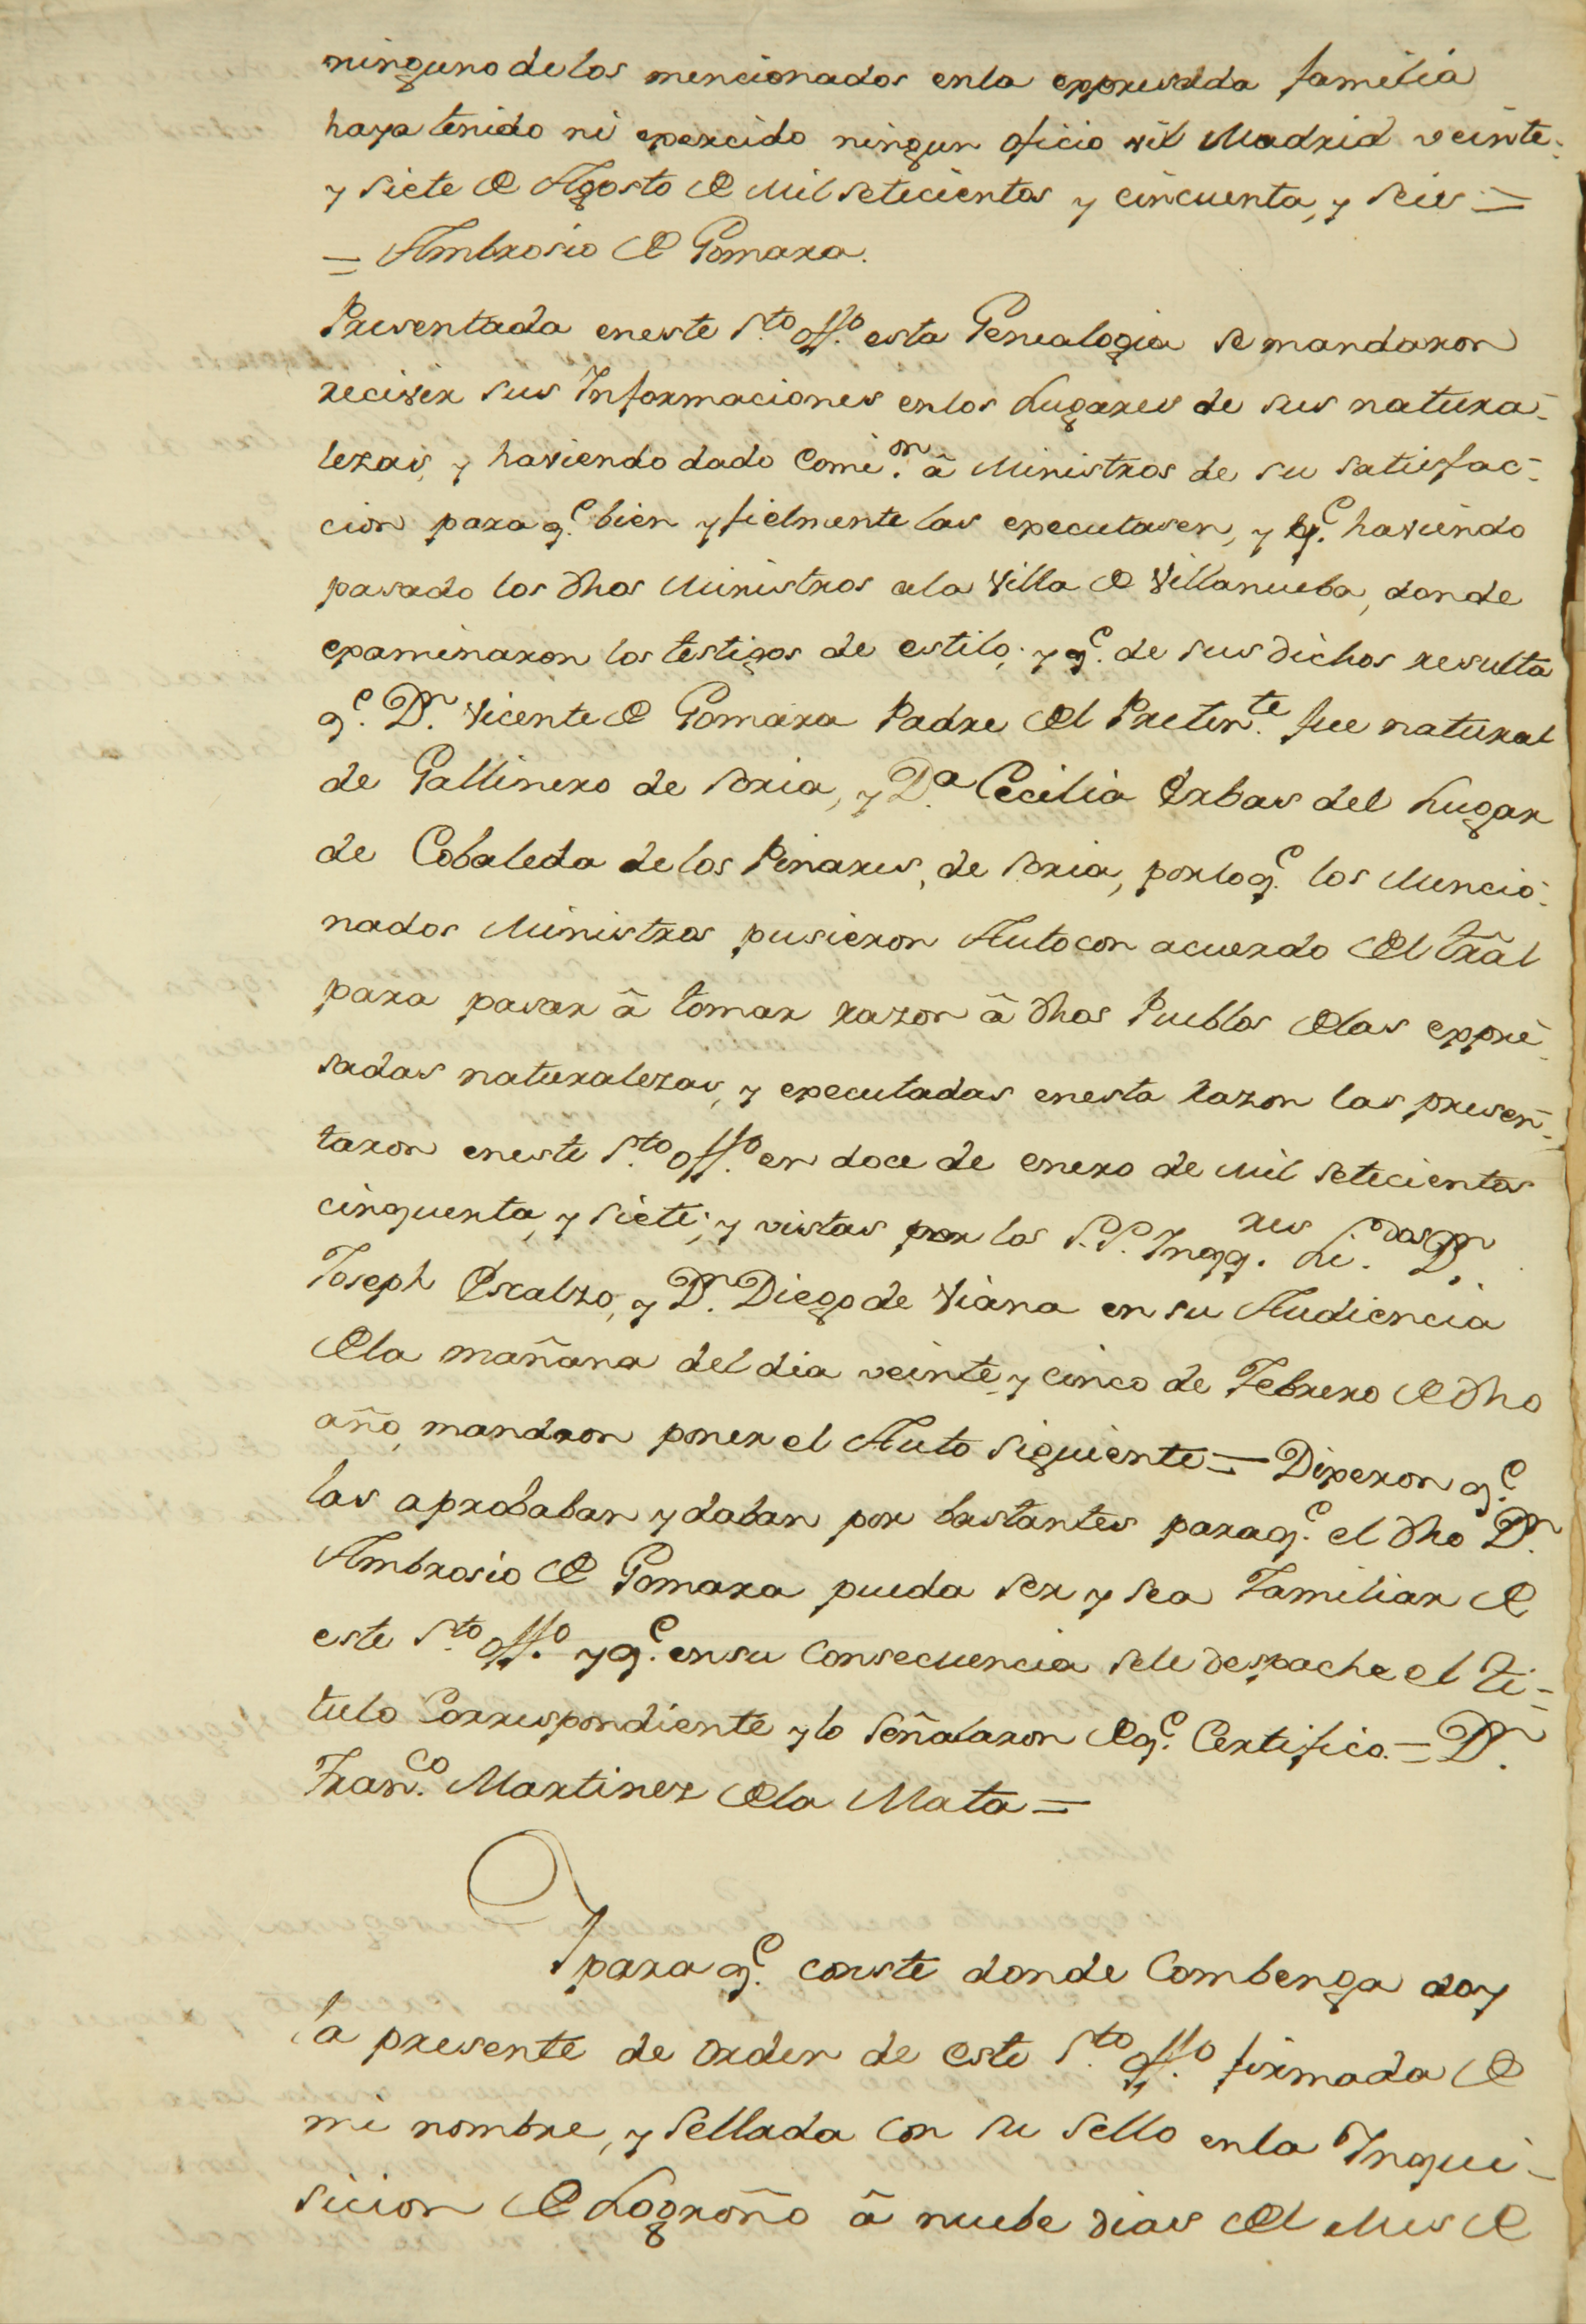 ninguno de los mencionados en la expresadda familia
haya tenido ni exercido ningun oficio vil Madrid veinte
y siete de Agosto de Mil setecientos y cincuenta, y seis =
= Ambrosio de Gomara.
Presentada en este S.to Off.o esta Genealogia se mandaron
recivir sus Informaciones en los Lugares de sus natura-
lezas, y haviendo dado Comi.on â Ministros de su satisfac-
cion para q.e bien y fielmente las executasen, y q.e haviendo
pasado los dhos Ministros a la Villa de Villanueba, donde
examinaron los testigos de estilo; y q.e de sus dichos resulta
q.e D.n Vicente de Gomara Padre del Preten.te fue natural
de Gallinero de Soria, y D.a Cecilia Erbas del Lugar
de Cobaleda de los Pinares, de Soria, por lo q.e los Mencio-
nados Ministros pusieron Auto con acuerdo del trâl
para pasar â tomar razon â dhos Pueblos de las expre-
sadas naturalezas, y executadas en esta razon las presen-
taron en este S.to Off.o en doce de enero de Mil setecientos
cinquenta, y siete; y vistas por los S.S. Inqq.res Li.dos D.n
Joseph Escalzo, y D.n Diego de Viana en su Audiencia
de la mañana del dia veinte y cinco de Febrero de dho
año, mandron poner el Auto siguiente = Dixeron q.e
las aprobaban y daban por bastantes para q.e el dho D.n
Ambrosio de Gomara pueda ser y sea Familiar de
este S.to Off.o y q.e en su Consecuencia se le despache el Ti-
tulo Correspondiente y lo señalaron de q.e Certifico. = D.n
Fran.co Martinez de la Mata =
Y para q.e conste donde Combenga doy
la presente de orden de este S.to Off.o firmada de
mi nombre, y Sellada con su sello en la Inqui-
sicion de Logroño â nuebe dias del Mes de